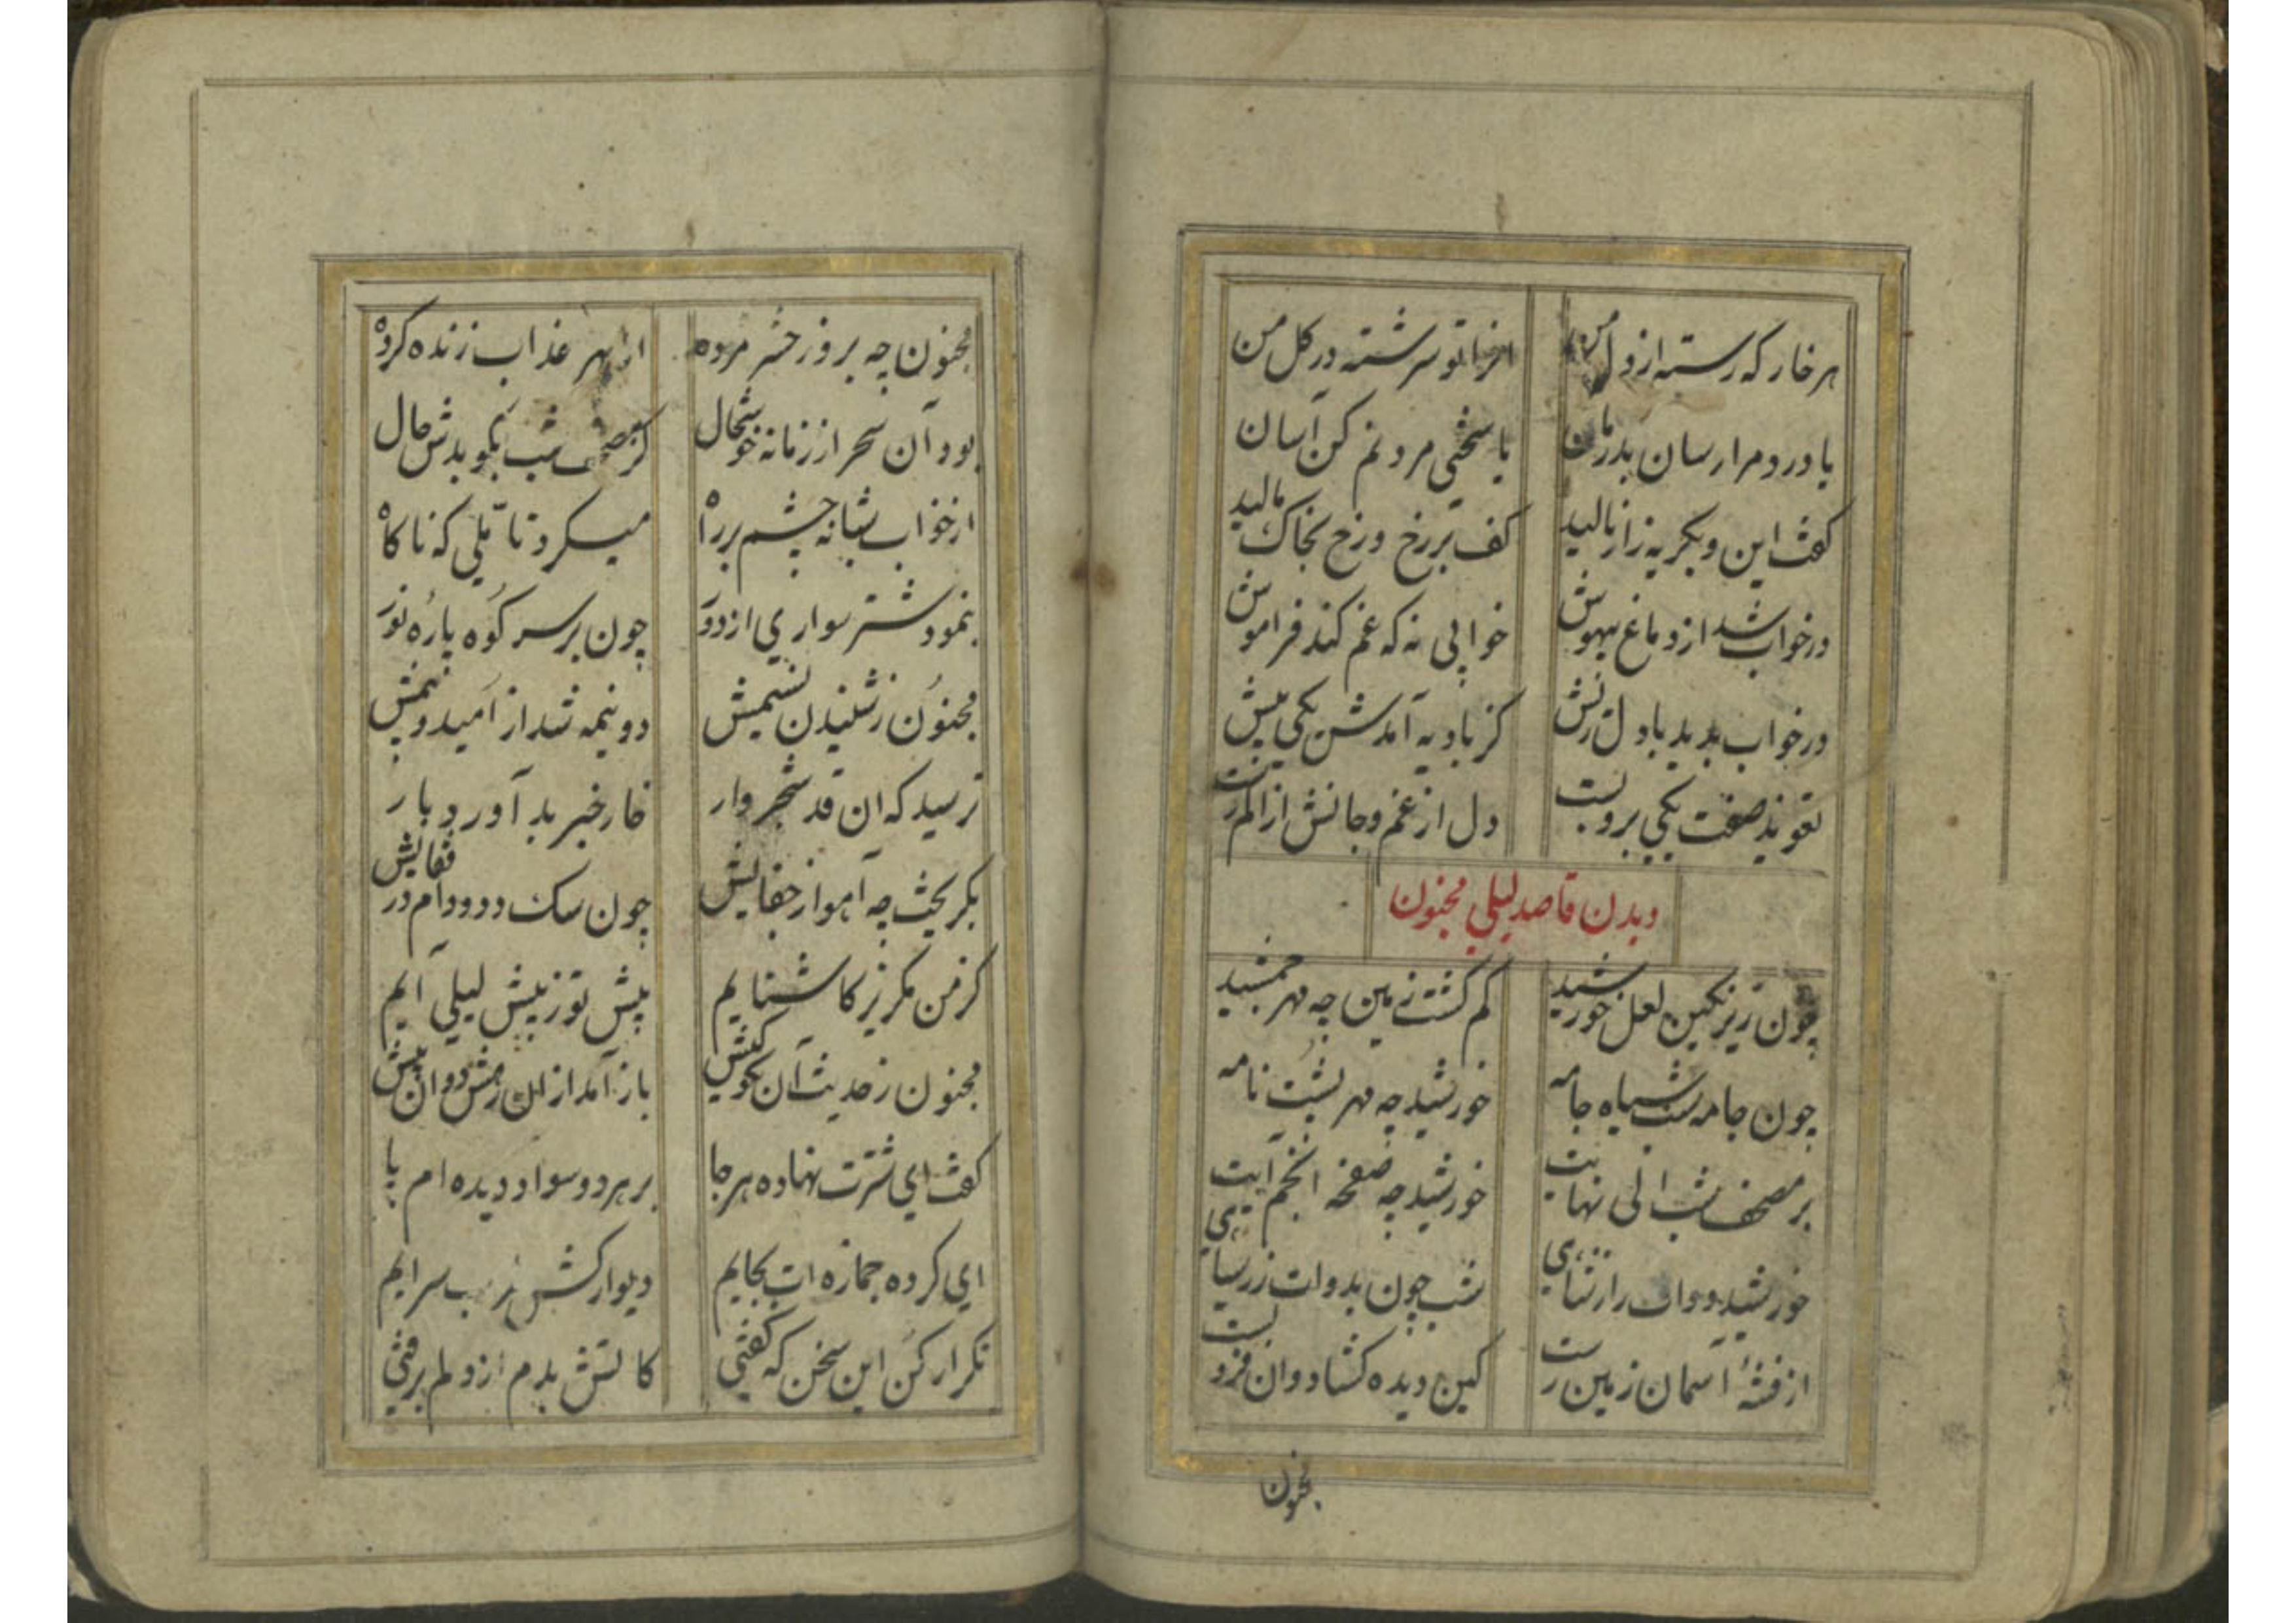 هر خار که رسته از دل من    تو سرشته در گل من
یا درد مرا رسان بدرمان    یا سختی مردنم کن آسان
گفت این و بگریه زار نالید    کف بر رخ و رخ بخاک مالید
در خواب شد از دماغ بیهوش    خوابی نه که غم کند فراموش
در خواب بدید با دل ریش    کز بادیه آمدش یکی پیش
تعویذ صفت یکی برو بست    دل از غم و جانش از الم رست
دیدن قاصد لیلی مجنون
چون زیر نگین لعل خورشید    گم گشت زمین چه مهر جمشید
چون جامه شب سیاه جامه    خورشید چه مهر پشت نامه
بر مصحف شب الی نهایت    خورشید چه صفحه انجم آیت
خورشید دوات را    شب چون بدوات زر سیاهی
از فتنهٔ آسمان زمین رست    کین دیده گشاد و ان فرو بست
مجنون
مجنون چه بروز حشر مرده    از بهر عذاب زنده کرده
بود آن سحر از زمانه خوشحال    کز مصحف شب نکو بدش فال
از خواب شبانه چشم بر راه    میکرد تاملی که ناگاه
بنمود شتر سواری از دور    چون بر سر کوه پاره نور
مجنون ز شنیدن نسیمش    دو نیمه شد از امید و بیمش
ترسید که ان قد شجر وار    خار خبر بد آورد بار
بگریخت چه آهو از جفایش    چون سگ دوواندام در قفایش
کز من مگریز کاشنایم    پیش تو ز پیش لیلی آیم
مجنون ز حدیث آن نکو کیش    باز آمد از ان رمش دوان پیش
گفت ای شترت نهاده هر جا    بر هر دو سواد دیده ام پا
ای کرده جمازه ات بجایم    دیوار کش سرایم
تکرار کن این سخن که گفتی    کاتش بدم از دلم برفتی